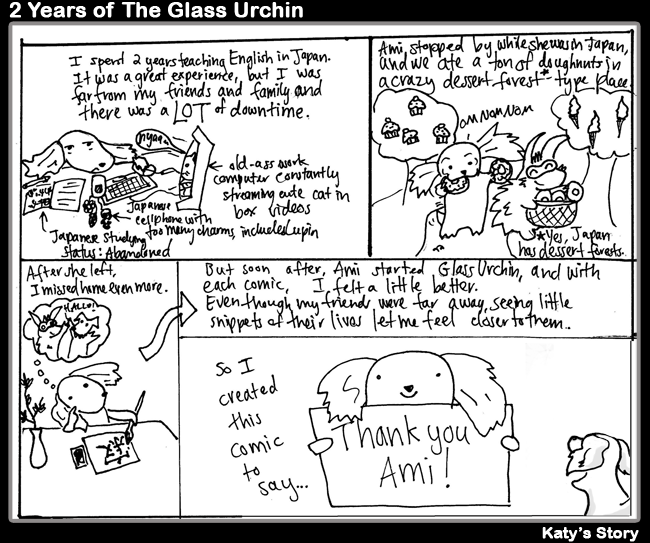 2 Years of The Glass Urchin
I spend 2 years teaching English in Japan.
It was a great experience, but I was
far from my friends and family and
there was a LOT of downtime.
nyaa~
old-ass work
computer constantly
streaming cute cat in
box videos
Japanese
cellphone with
too many charms, includes Lupin
Japanese Studying
Status: Abandoned
Ami, stopped by while she was in Japan,
and we ate a ton of doughnuts in
a crazy dessert forest* type place.
OM NOM NOM
*Yes, Japan
has dessert forests.
After she left,
I missed home even more.
HALLO!
But soon after, Ami started Glass Urchin, and with
each comic, I felt a little better.
Even though my friends were far away, seeing little
snippets of their lives let me feel closer to them..
So I
created
this
comic
to
say...
Thank you
Ami!
Katy's Story